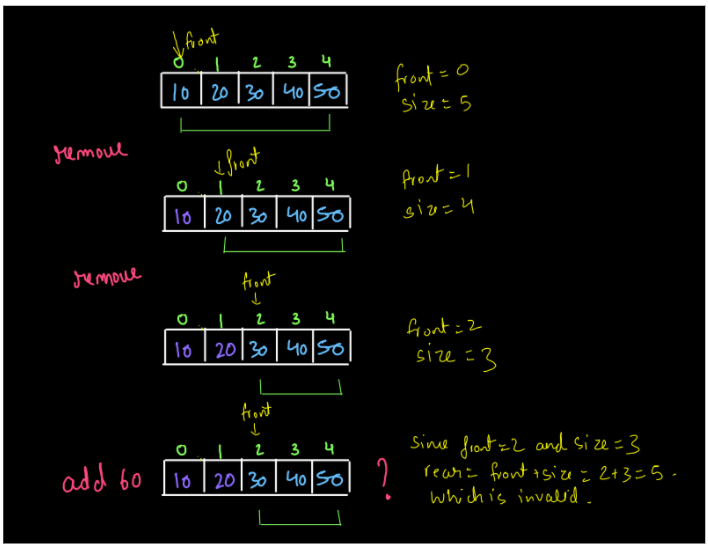 front
0 1 2 3 4
10 20 30 40 50
front = 0
size = 5
remove
front
0 1 2 3 4
10 20 30 40 50
front = 1
size = 4
remove
front
0 1 2 3 4
10 20 30 40 50
front = 2
size = 3
front
0 1 2 3 4
add 60
10 20 30 40 50
?
Since front = 2 and size = 3
rear = front + size = 2 + 3 = 5.
which is invalid.